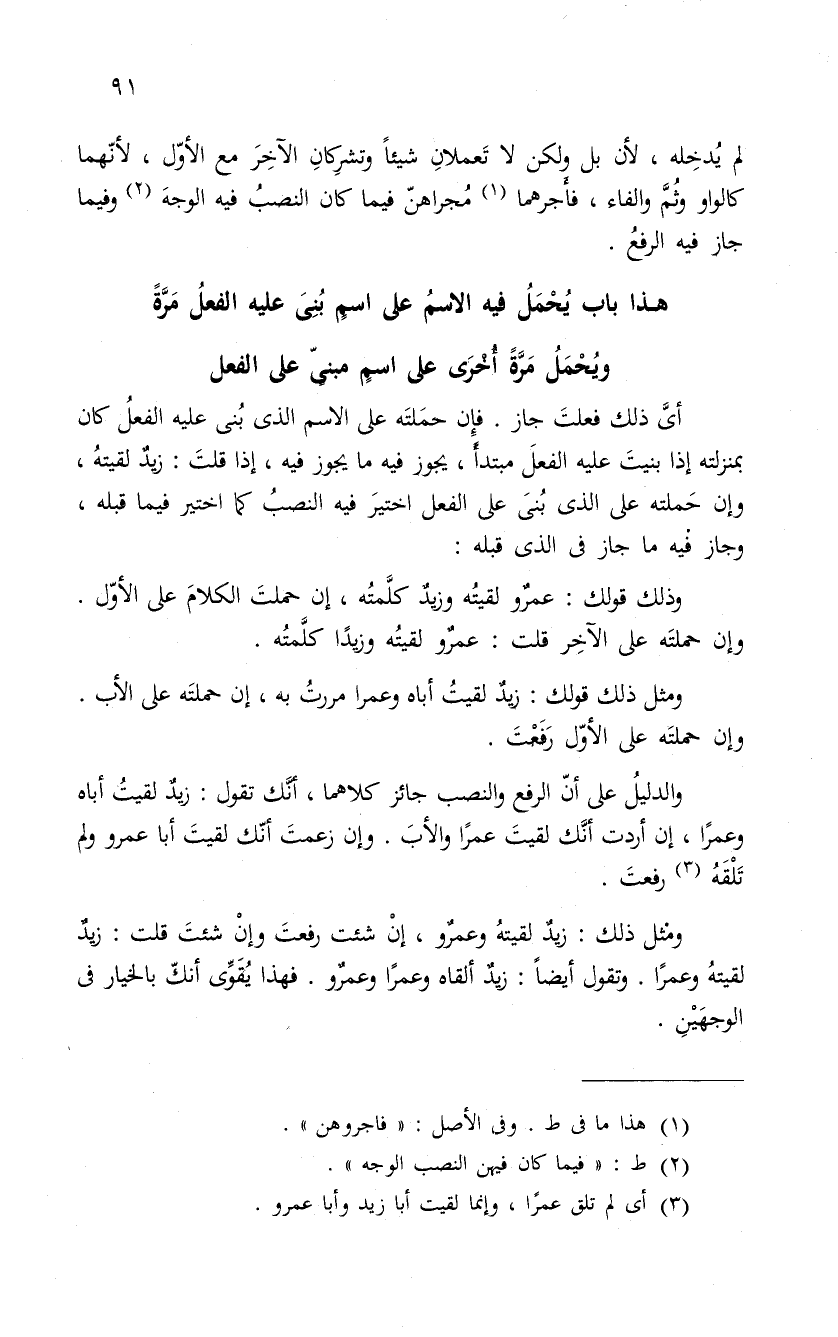 ٩١
لم يُدخِله ، لأن بل ولكن لا تَعملانِ شيئاً وتشرِكانِ الآخِرَ مع الأوّل ، لأنّهما
كالواو وثُمَّ والفاء ، فأَجرهما (١) مُجراهنّ فيما كان النصبُ فيه الوجهَ (٢) وفيما
جاز فيه الرفعُ .
هـذا باب يُحْمَلُ فيه الاسمُ على اسمٍ بُنِىَ عليه الفعلُ مَرَّةً
ويُحْمَلُ مَرَّةً أُخْرَى على اسمٍ مبنىّ على الفعل
أىَّ ذلك فعلتَ جاز . فإِن حمَلتَه على الاسم الذى بُنى عليه الفعلُ كان
بمنزلته إذا بنيتَ عليه الفعلَ مبتدأً ، يجوز فيه ما يجوز فيه ، إذا قلتَ : زيدٌ لقيتهُ ،
وإن حَملته على الذى بُنىَ على الفعل اختيرَ فيه النصبُ كما اختير فيما قبله ،
وجاز فيه ما جاز فى الذى قبله :
وذلك قولك : عمرٌو لقيتُه وزيدٌ كلَّمتُه ، إن حملتَ الكلامَ على الأوّل .
وإن حملتَه على الآخِر قلت : عمرٌو لقيتُه وزيدًا كلَّمتُه .
ومثل ذلك قولك : زيدٌ لقيتُ أباه وعمرا مررتُ به ، إن حملتَه على الأب .
وإن حملتَه على الأوّل رَفَعْتَ .
والدليلُ على أنّ الرفع والنصب جائز كلاهما ، أنَّك تقول : زيدٌ لقيتُ أباه
وعمرًا ، إن أردت أنَّك لقيتَ عمرًا والأبَ . وإن زعمتَ أنّك لقيتَ أبا عمرو ولم
تَلْقَهُ (٣) رفعتَ .
ومْثل ذلك : زيدٌ لقيتهُ وعمرٌو ، إنْ شئت رفعتَ وإنْ شئتَ قلت : زيدٌ
لقيتهُ وعمرًا . وتقول أيضاً : زيدٌ ألقاه وعمرًا وعمرٌو . فهذا يُقَوِّى أنكّ بالخيار فى
الوجهَيْنِ .
(١) هذا ما فى ط . وفى الأصل : « فاجروهن » .
(٢) ط : « فيما كان فيهن النصب الوجه » .
(٣) أى لم تلق عمرًا ، وإنما لقيت أبا زيد وأبا عمرو .